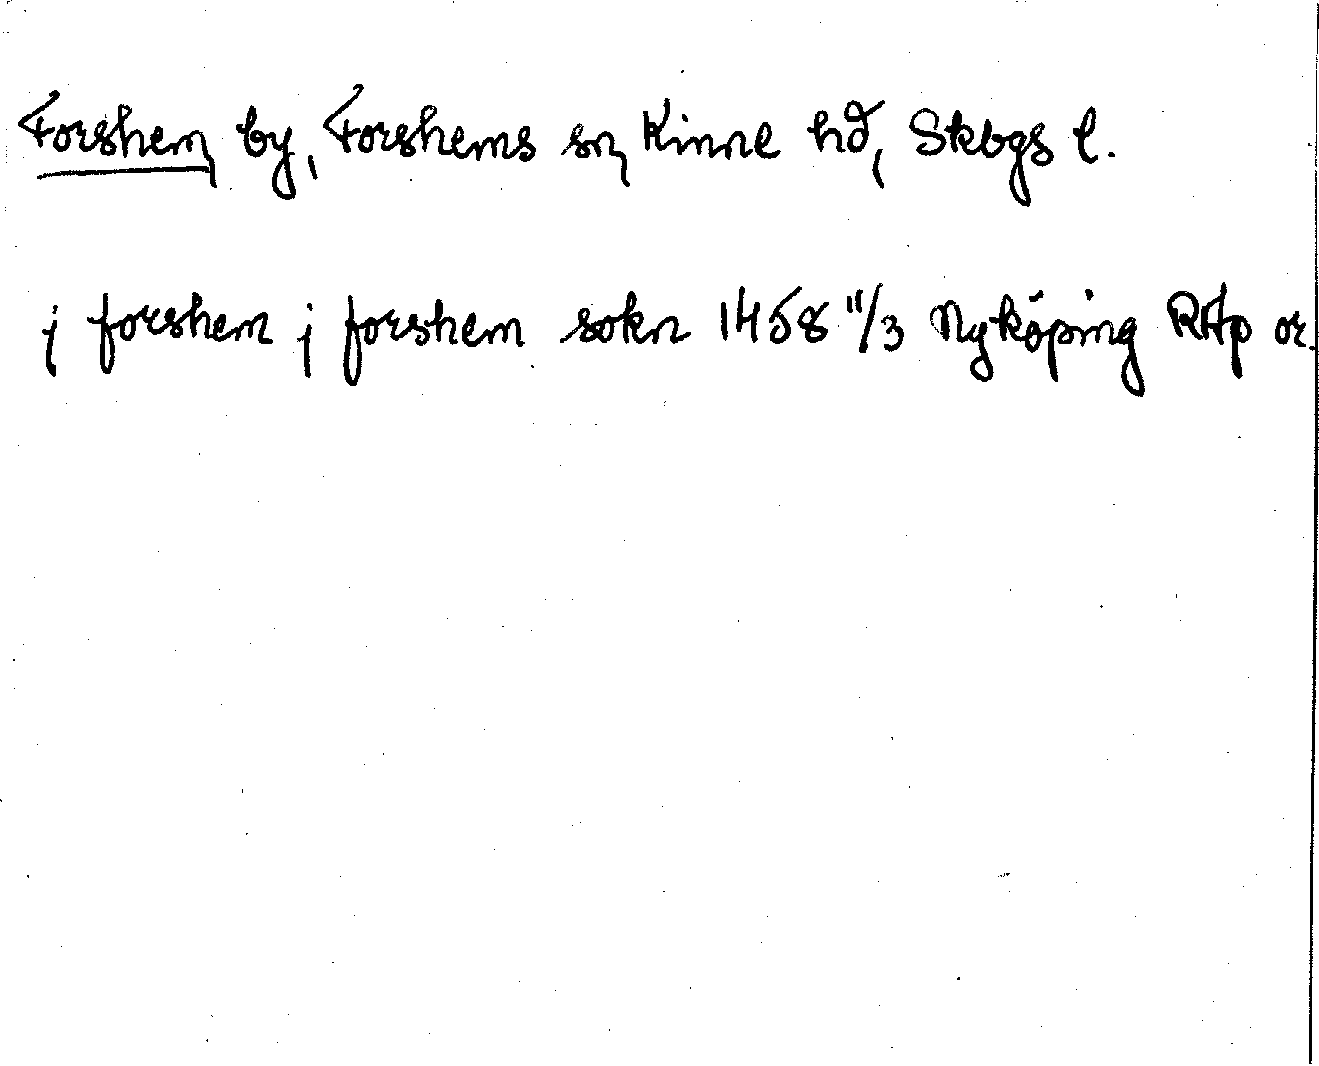 Forshem, by, Forshems sn, Kinne hd, Skbgs l.
j forshem j forshem sokn 1458 11/3 Nyköping RAp or.